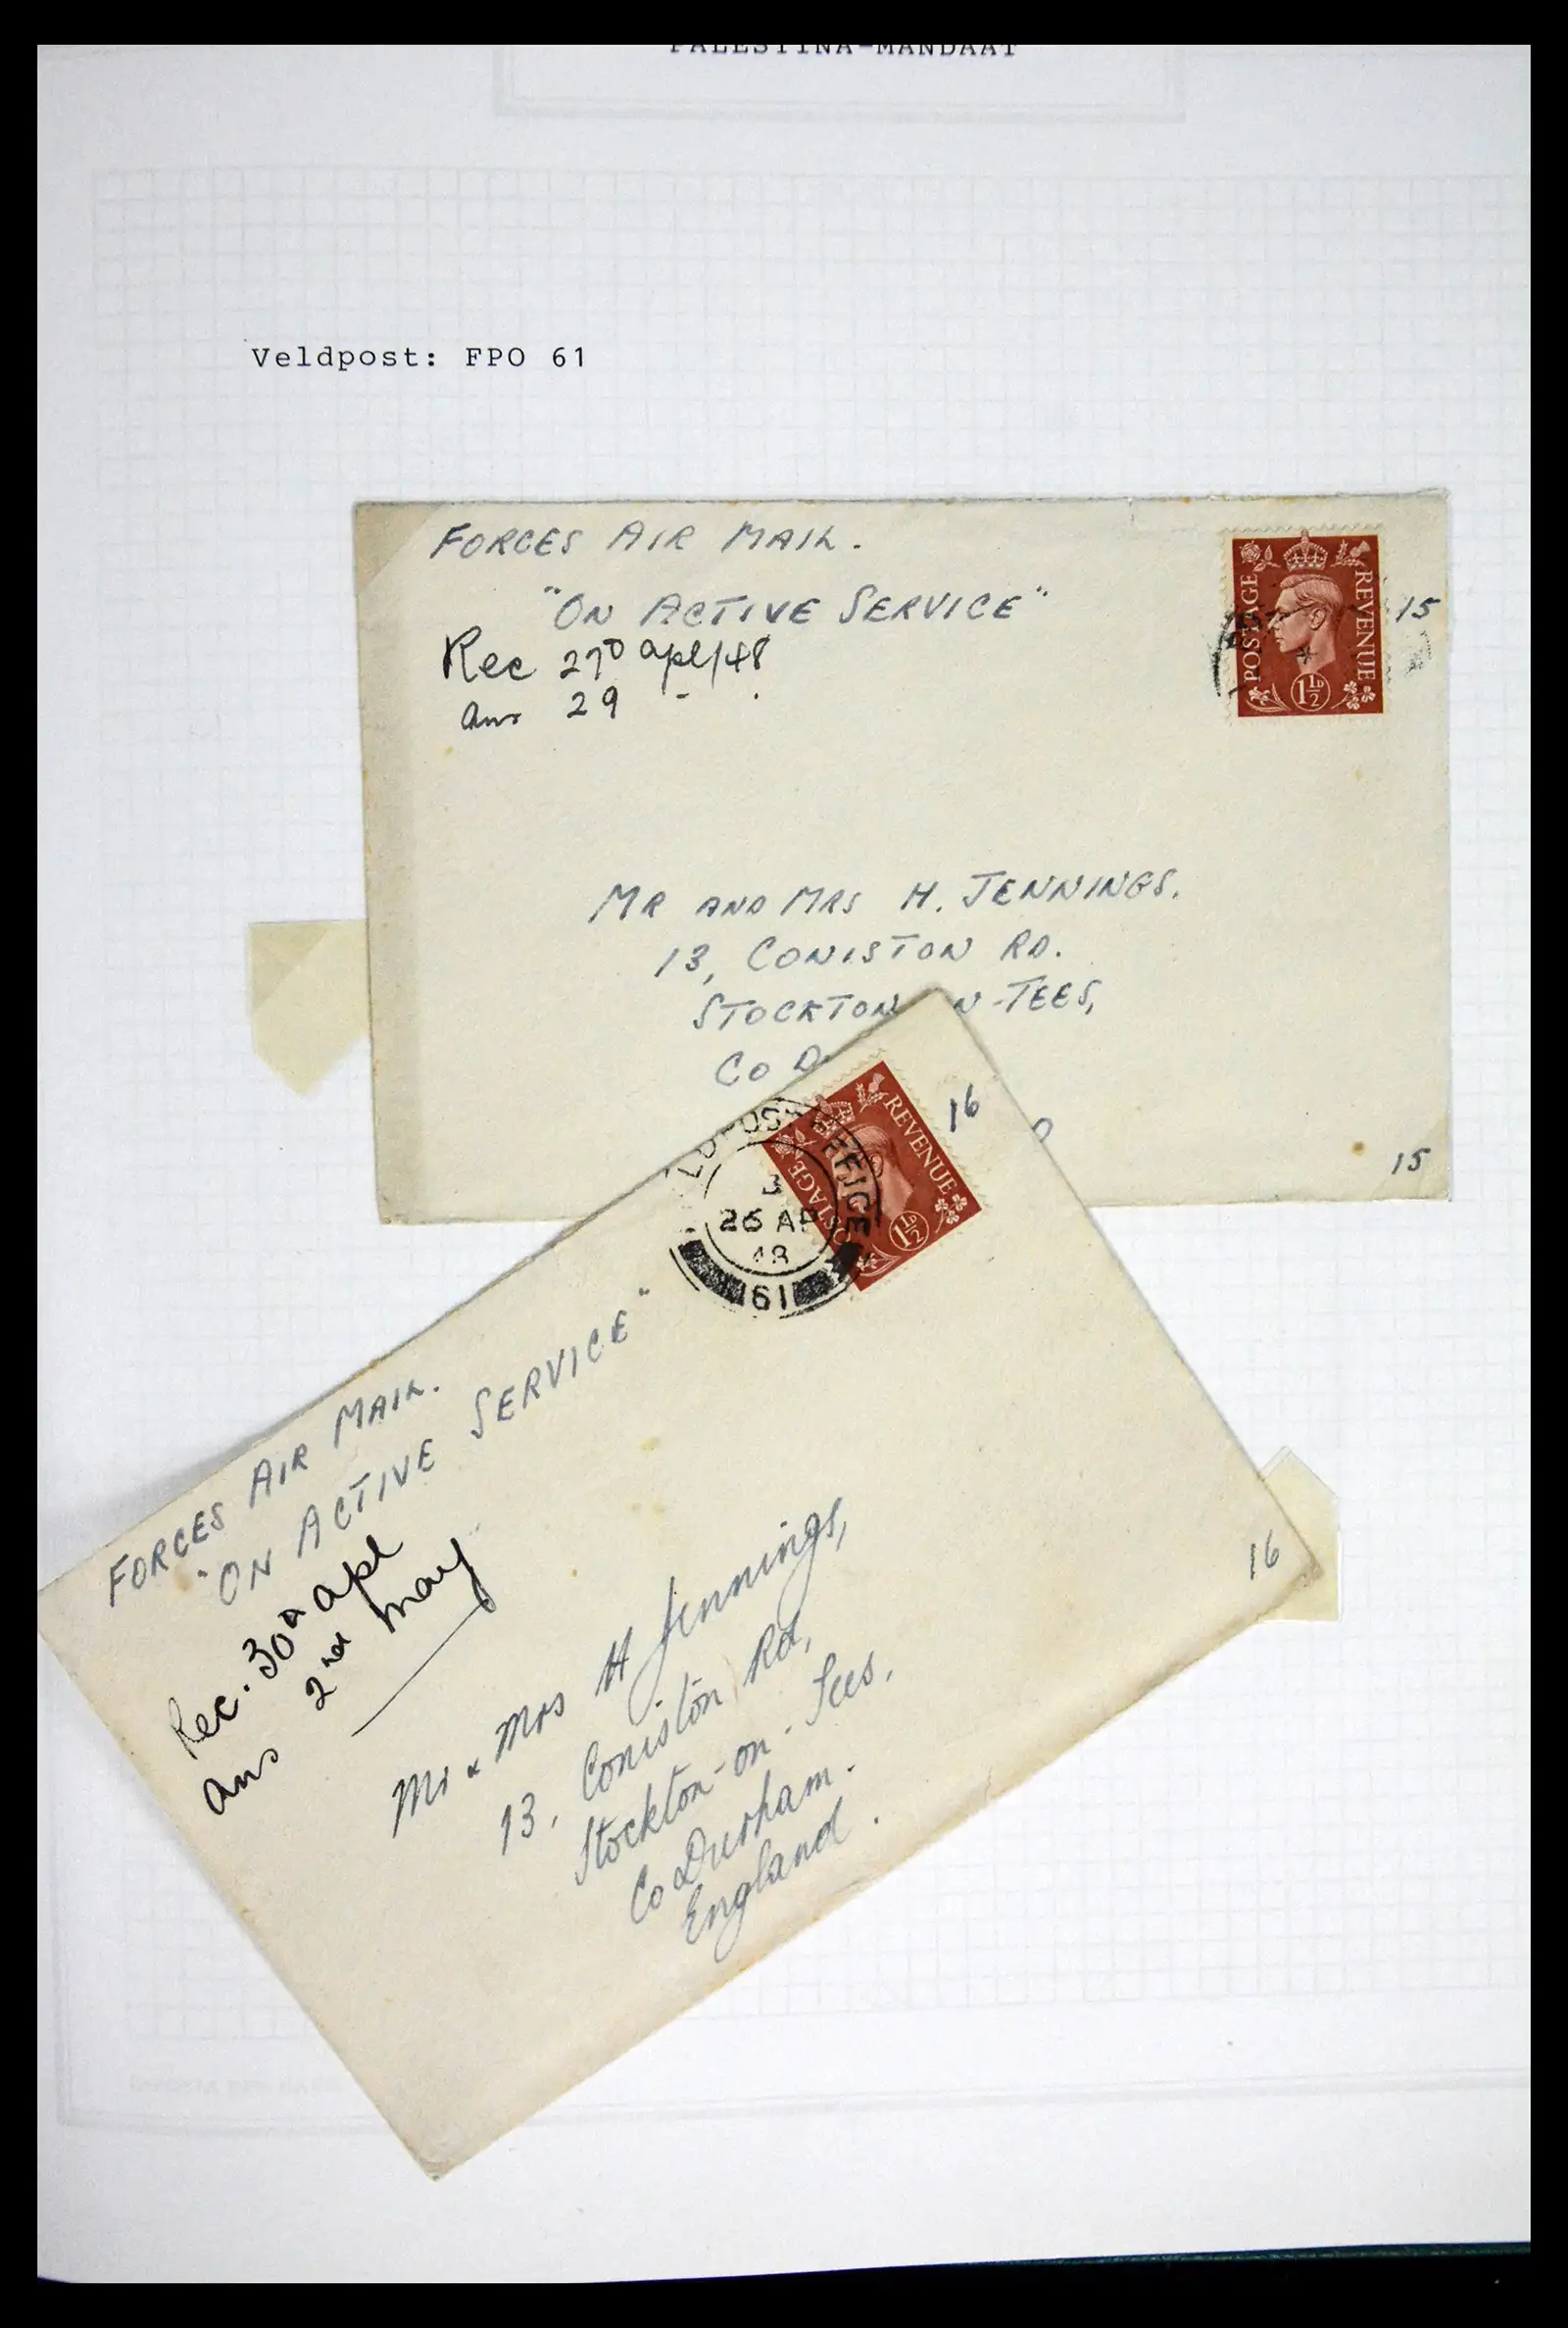 PALESTINA-MANDAAT
Veldpost: FPO 61
FORCES AIR MAIL.
"ON ACTIVE SERVICE"
Rec 27D apl/48
Ans 29 - .
POSTAGE REVENUE
1½D
15
MR AND MRS H. JENNINGS.
13, CONISTON RD.
STOCKTON N-TEES,
CO D
D
15
16
REVENUE
POSTAGE
1½D
LD POST OFFICE
3
26 AP
48
61
FORCES AIR MAIL.
"ON ACTIVE SERVICE"
Rec. 30th apl
Ans 2nd May
Mr & Mrs H Jennings,
13, Coniston Rd,
Stockton-on-Tees.
Co Durham.
England.
16